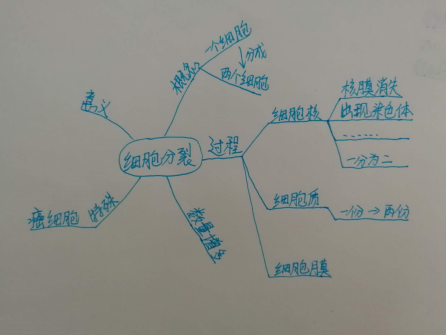 细胞分裂
概念
一个细胞
分成
两个细胞
过程
细胞核
核膜消失
出现染色体
……
一分为二
细胞质
一份→两份
细胞膜
数量增多
特殊
癌细胞
意义